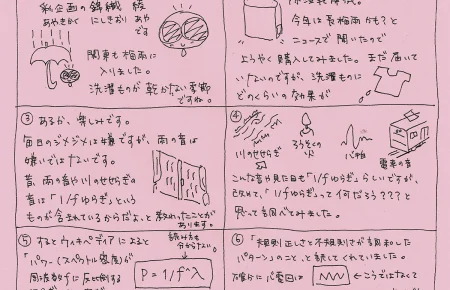 私企画の錦織 綾
あやきかく にしきおり あや
です
関東も梅雨に
入りました。
洗濯ものが乾かない季節
ですね。
今年は長梅雨かも?と
ニュースで聞いたので
ようやく購入してみました。まだ届いて
いないのですが、洗濯ものに
どのくらいの効果が
③ あるか、楽しみです。
毎日のジメジメは嫌ですが、雨の音は
嫌いではないです。
昔、雨の音や川のせせらぎの
音は「1/fゆらぎ」という
ものが含まれているからだよ、と教わったことが
あります。
④
川のせせらぎ
ろうそくの
火
心拍
電車の音
こんな音や見た目も「1/fゆらぎ」らしいですが、
改めて、「1/fゆらぎ」って何だろう???と
思って調べてみました。
⑤ するとウィキペディアによると
読み方も
分からない。
「パワー(スペクトル密度)が
周波数fに反比例する
P=1/f^λ
⑥ 「規則正しさと不規則さが調和した
パターン」のこと、と訳してくれていました。
確かに心電図は
←こうではなくて